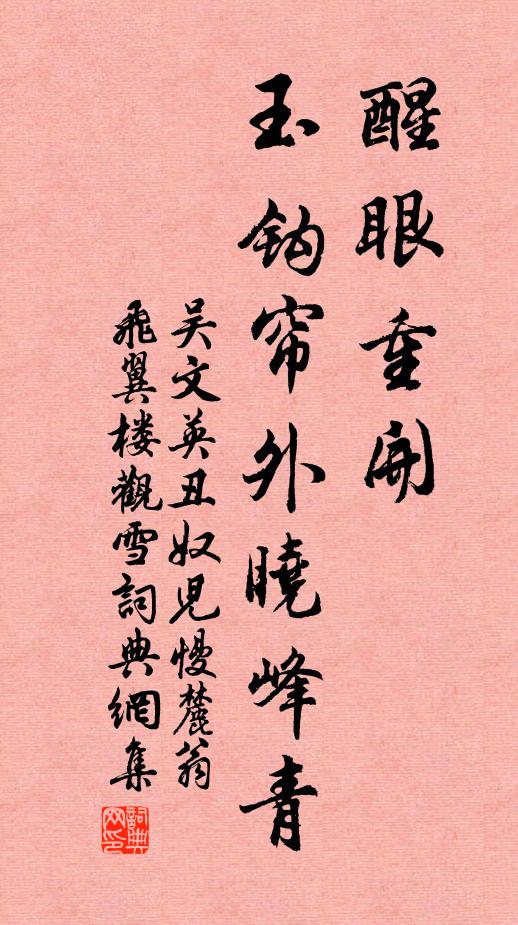 醒眼重開
玉鈎帘外曉峰青
吴文英丑奴兒慢麓翁
飛翼楼觀雪詞典網集
詞典
网印